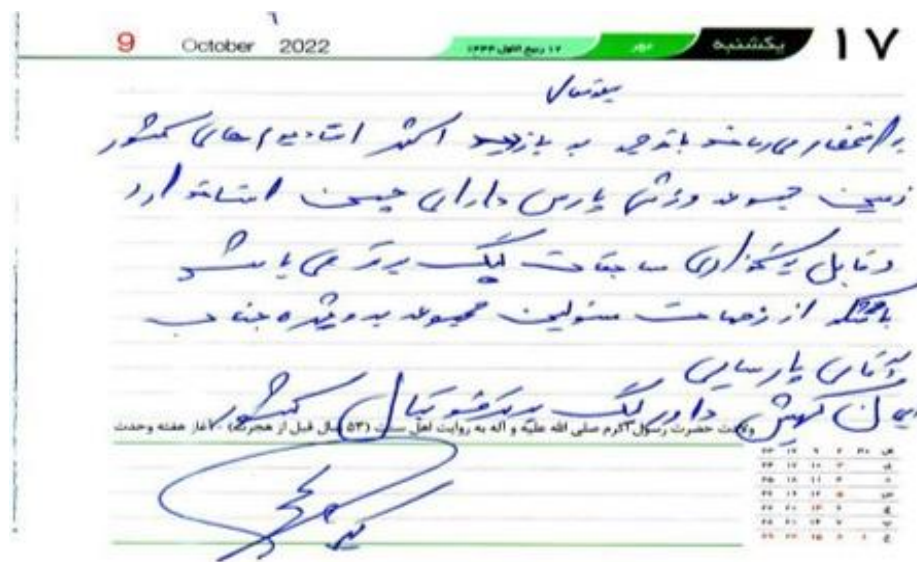 9 October 2022 ۱۲ ربیع الاول ۱۴۴۴ مهر یکشنبه ۱۷
بسمه تعالی
به استحضار می‌رساند باتوجه به بازدید اکثر استادیوم های کشور
زمین مجموعه ورزشی پارس دارای چمن استاندارد
و قابل برگزاری مسابقات لیگ برتر می باشد
باتشکر از زحمات مسئولین مجموعه به ویژه جناب
آقای پارسایی
داور لیگ برتر فوتبال کشور
ولادت حضرت رسول اکرم صلی الله علیه و آله به روایت اهل سنت (۵۳ سال قبل از هجرت) - آغاز هفته وحدت